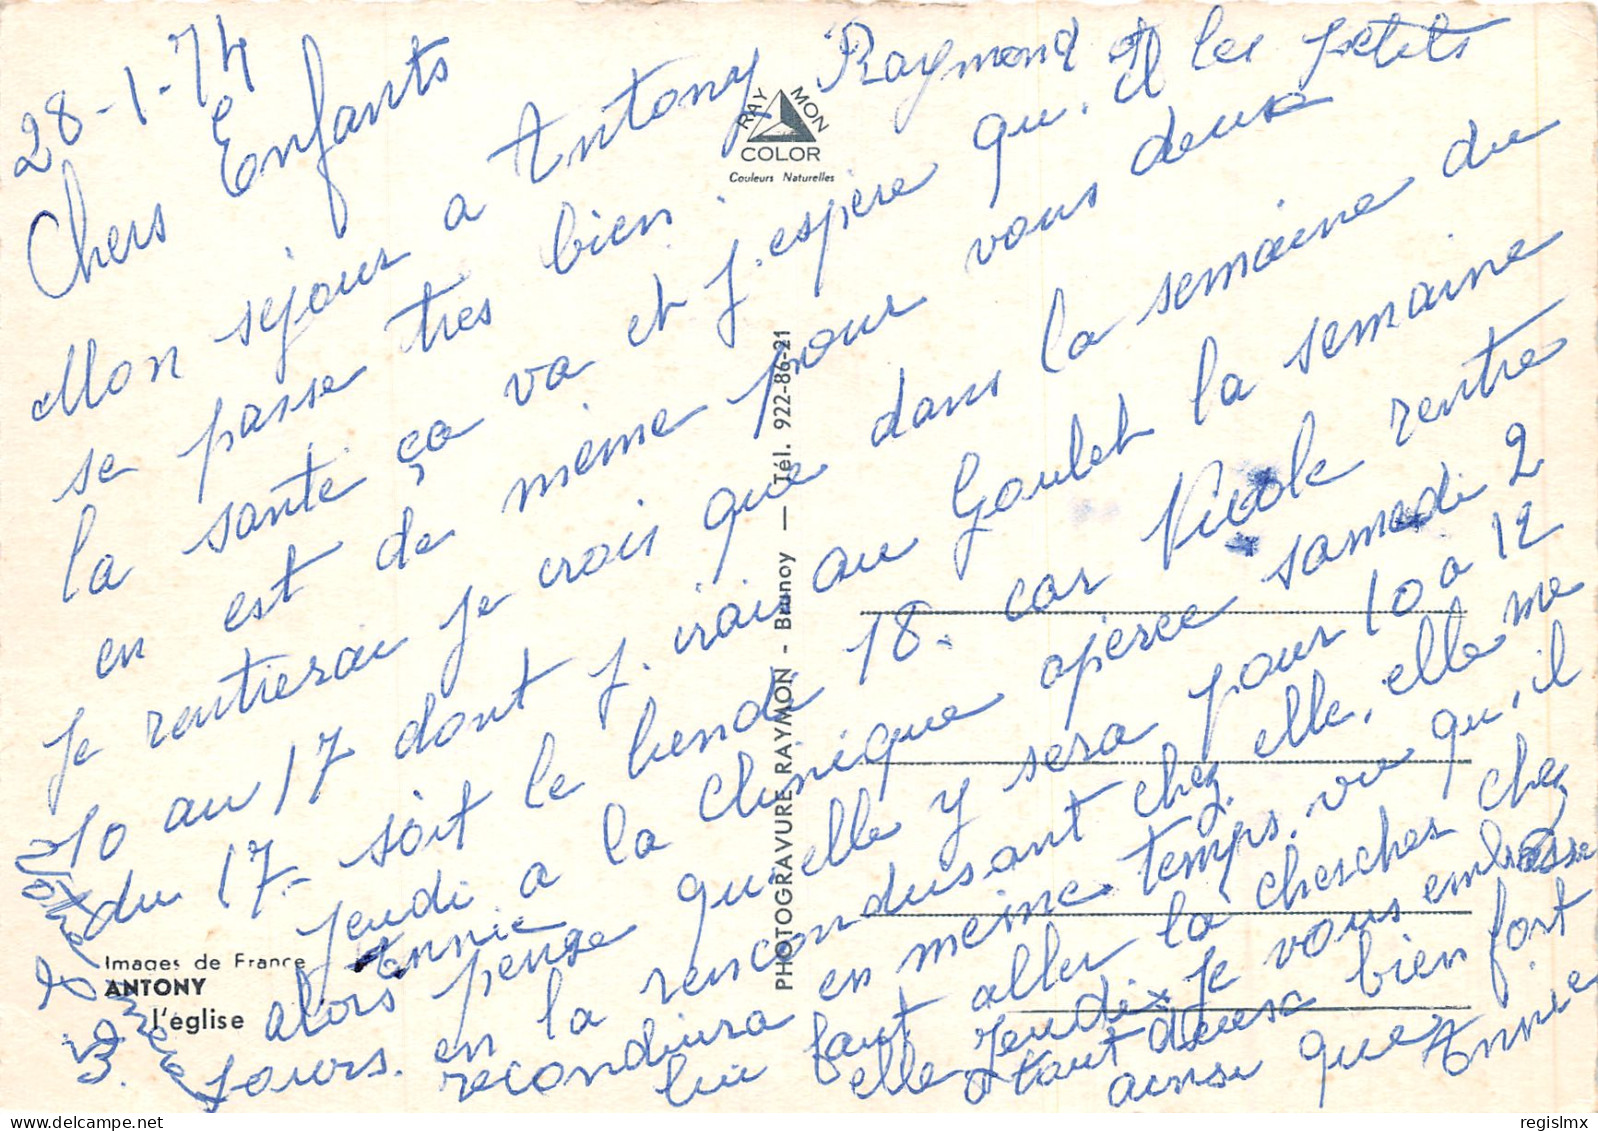 28-1-74
Chers Enfants
Mon séjour a Antony Raymond et les petits
se passe tres bien.
la santé ça va et j.espère qu.il
en est de même pour vous deux
Je rentrerai je crois que dans la semaine du
10 au 17 dont j.irai au Goulet la semaine
du 17. soit le lundi 18. car Nicole rentre
jeudi a la clinique aperce samedi 2
Annie
alors pense qu'elle y sera pour 10 a 12
jours. en la reconduisant chez elle, elle me
recondiura en meime temps. vu qu,il
lui faut aller la chercher chez
elle jeudi. Je vous embrasse
tout deux bien fort
ainsi que Annie
Votre
RAYMON
COLOR
Couleurs Naturelles
PHOTOGRAVURE RAYMON - Brunoy — Tél. 922-86-21
Images de France
ANTONY
l'église
delcampe.net
regislmx